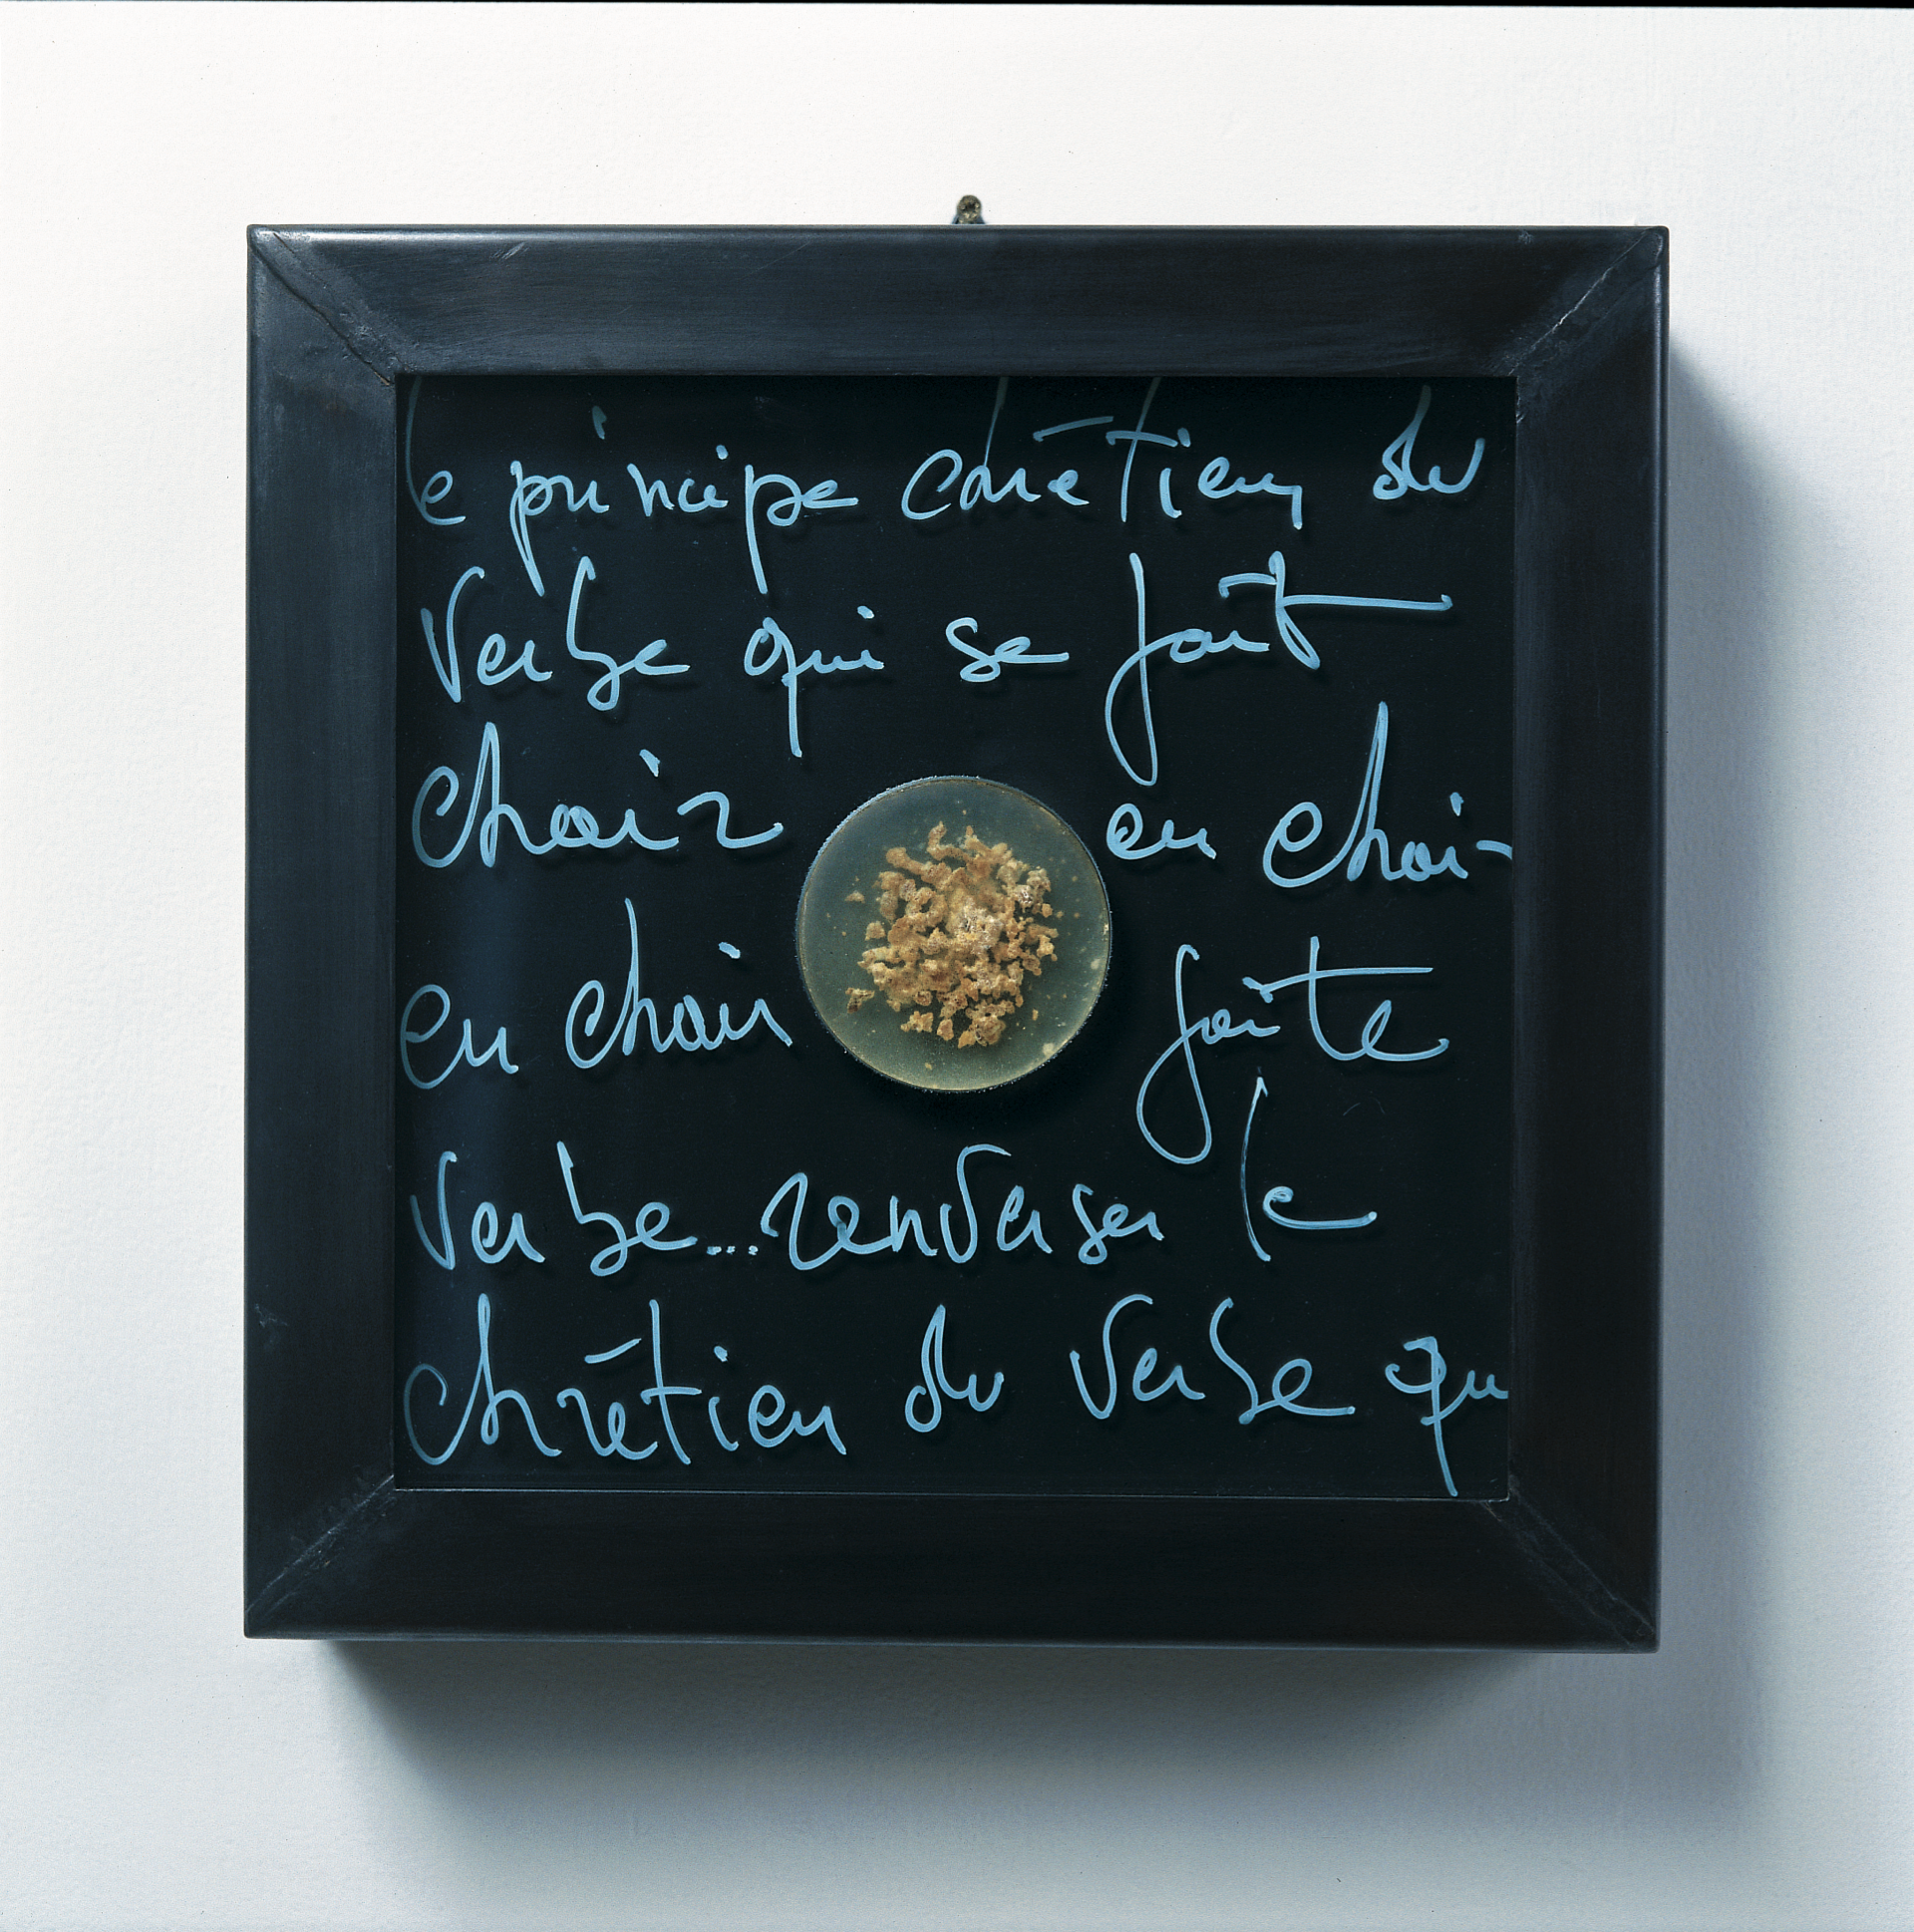 le principe chrétien du
Verbe qui se fait
chair en chai-
en chair faite
Verbe...renverser le
chrétien du Verbe qu